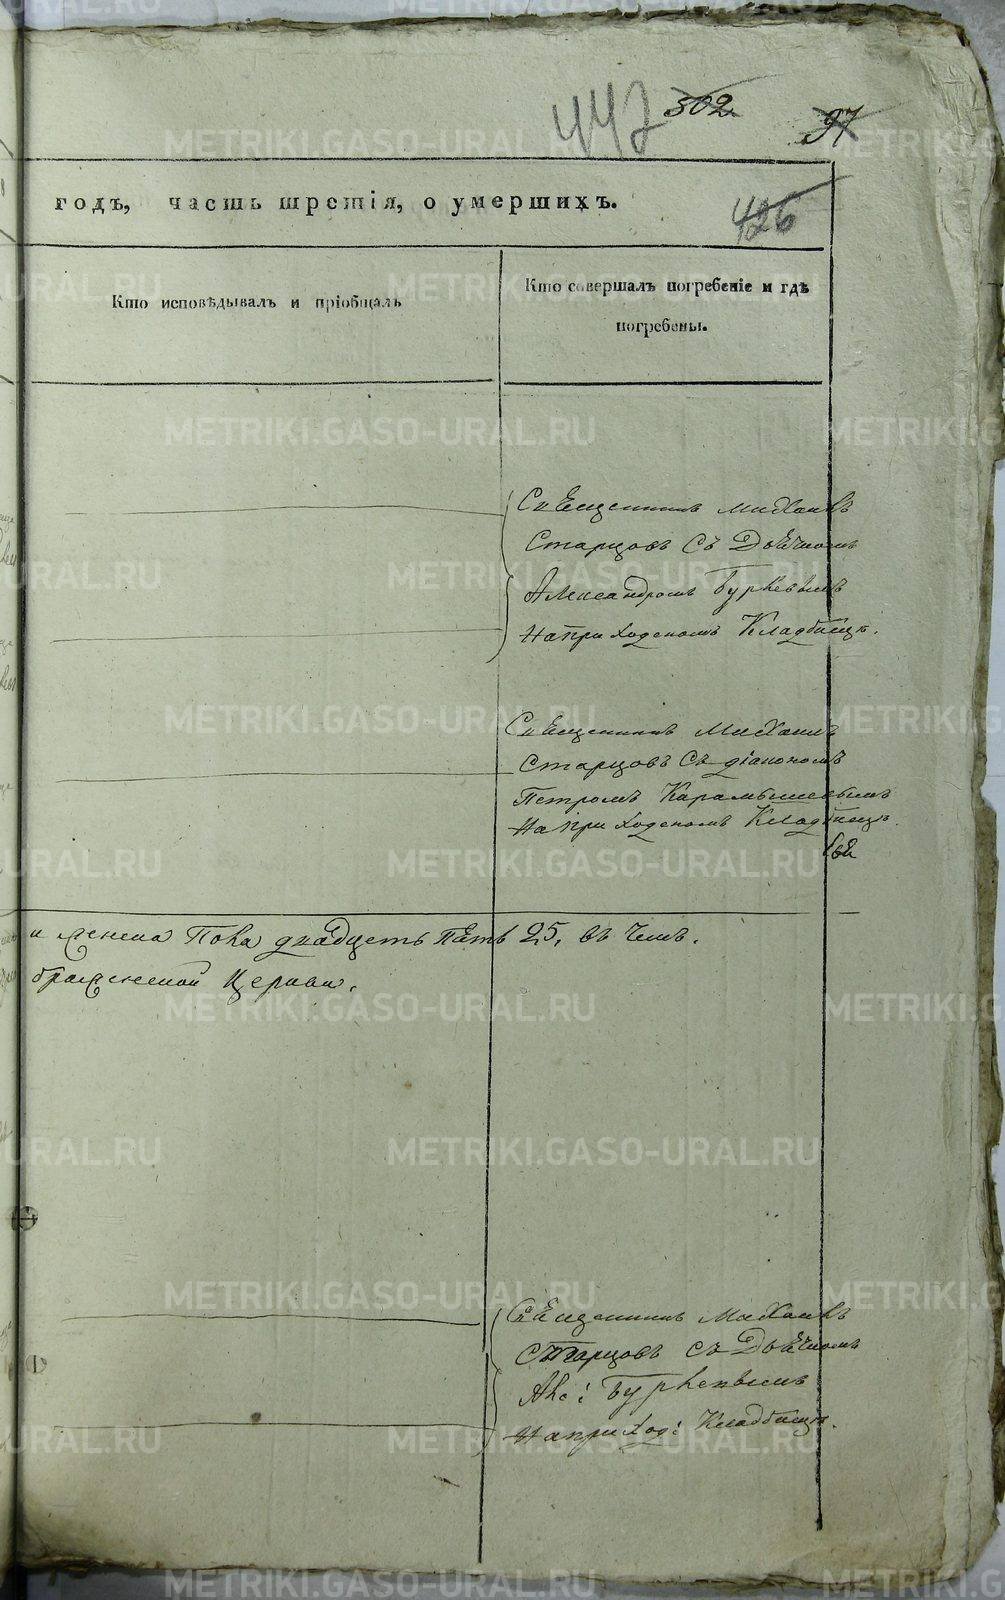 447 302 97
годъ, часть третія, о умершихъ.
426
Кто исповѣдывалъ и пріобщалъ
Кто совершалъ погребеніе и гдѣ
погребены.
Священникъ Михаилъ
Старцовъ съ Дьячкомъ
Александромъ
На приходскомъ Кладбищѣ.
Священникъ Михаилъ
Старцовъ съ діакономъ
Петромъ Карамышевымъ
На приходскомъ Кладбищѣ.
пола двадцеть пять 25, въ чемъ.
Церкви.
Священникъ Михаилъ
Старцовъ съ Дьячкомъ
На приход: Кладбищѣ.
METRIKI.GASO-URAL.RU